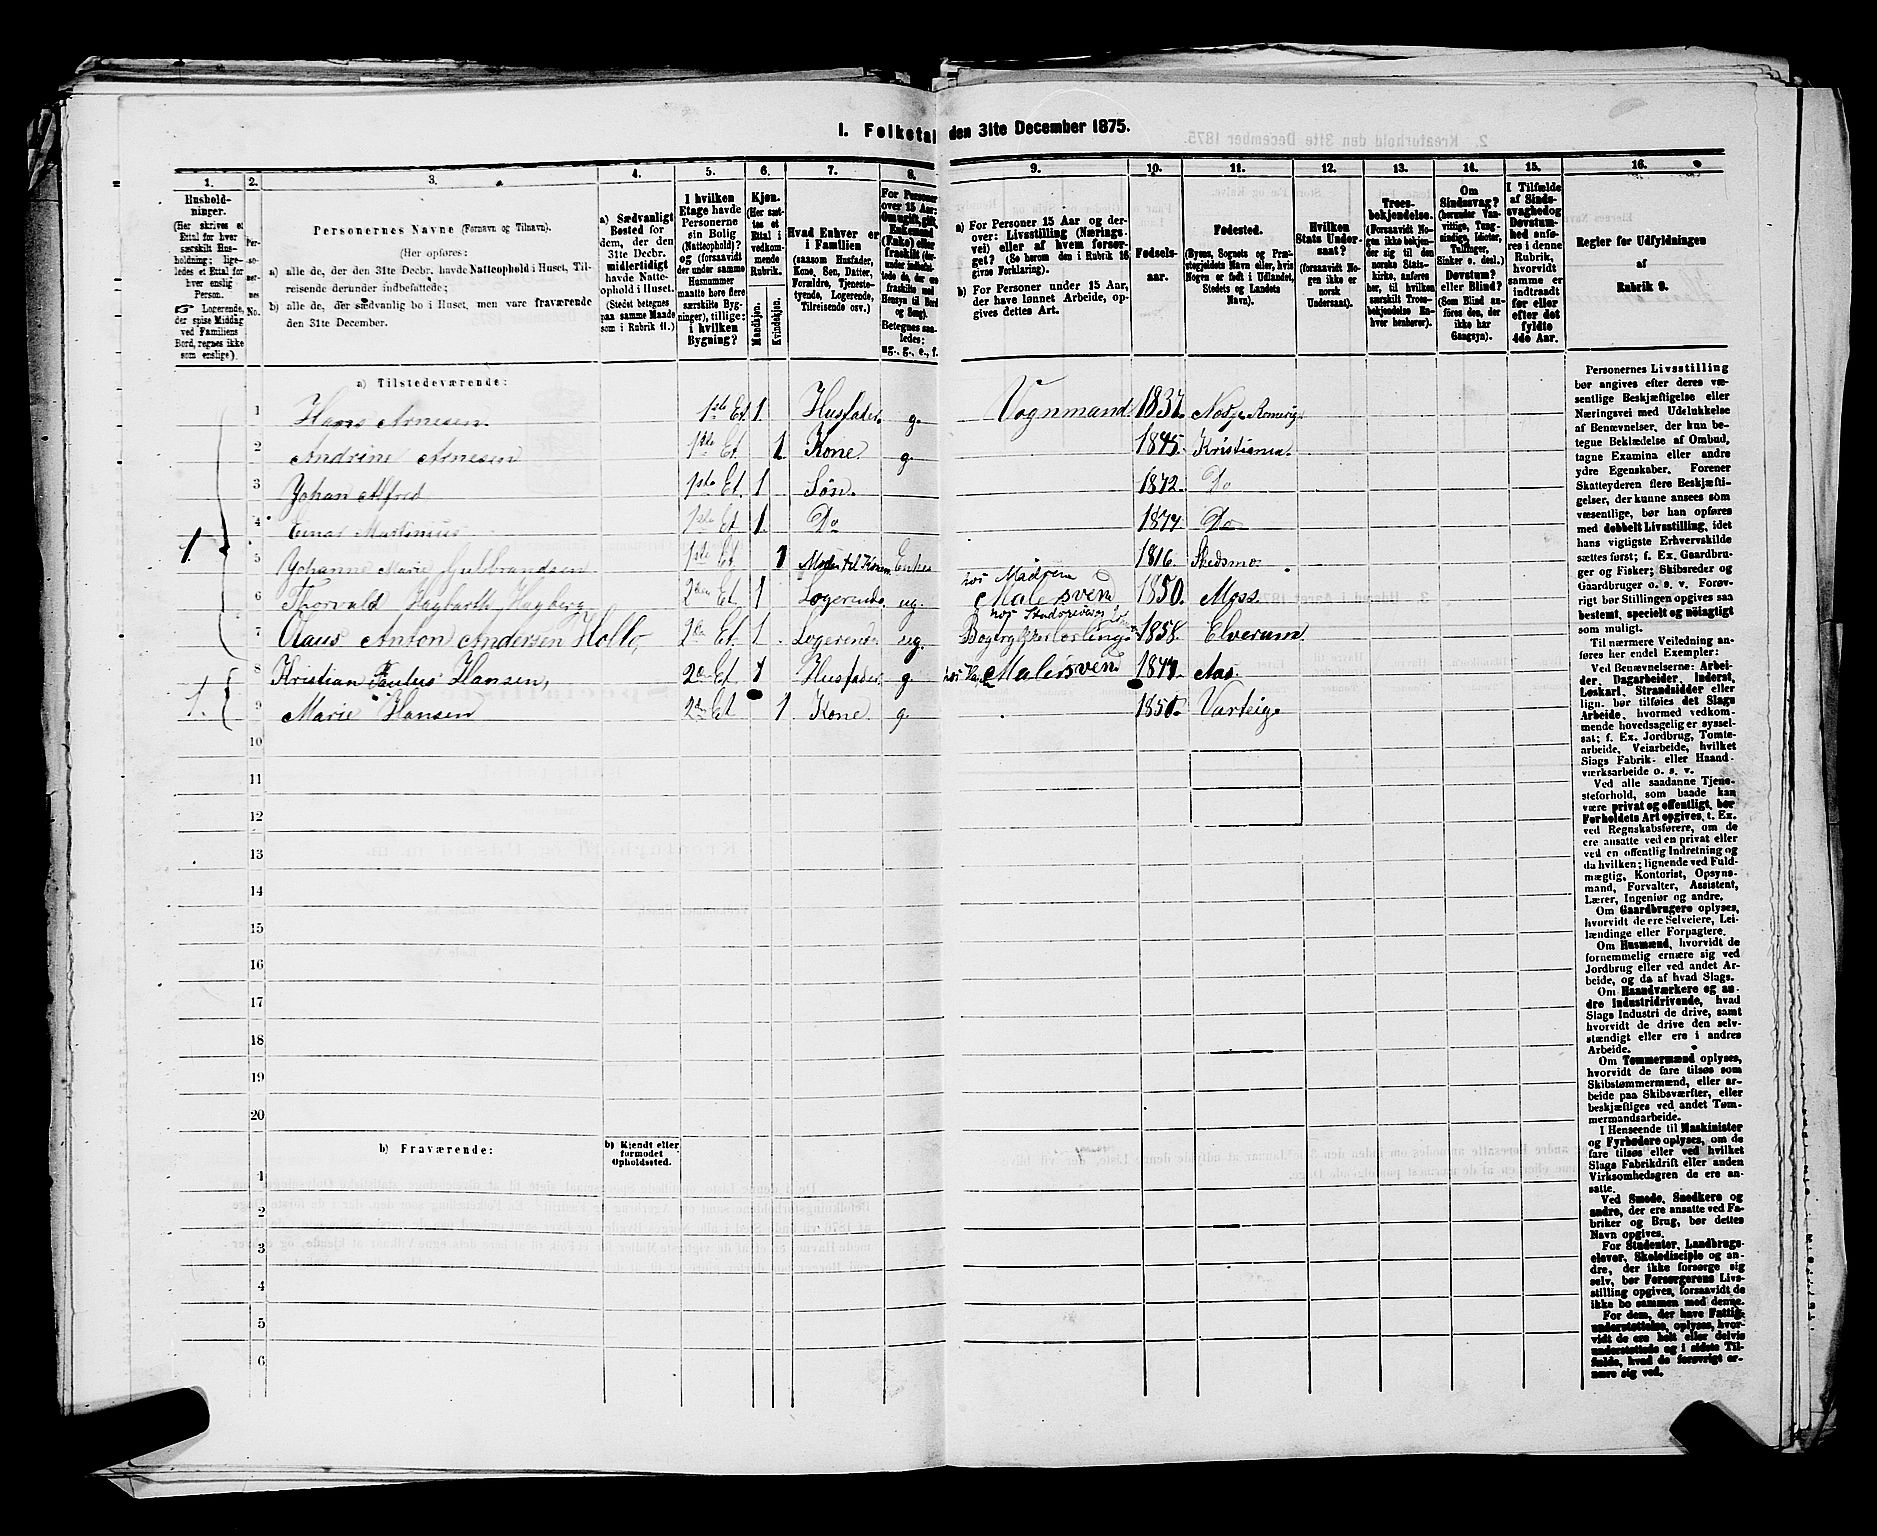 1. Folketal den 31te December 1875.
1. 2. 3. 4. 5. 6. 7. 8. 9. 10. 11. 12. 13. 14. 15. 16.
Husholdninger.
(Her skrives et Ettal for hver særskilt Husholdning; ligeledes et Ettal for hver enslig Person.
☞ Logerende, der spise Middag ved Familiens Bord, regnes ikke som enslige).
Personernes No.
Personernes Navne (Fornavn og Tilnavn).
(Her opføres:
a) alle de, der den 31te Decbr. havde Natteophold i Huset, Tilreisende derunder indbefattede;
b) alle de, der sædvanlig bo i Huset, men vare fraværende den 31te December.
a) Sædvanligt Bosted for dem, der den 31te Decbr. midlertidigt havde Natteophold i Huset.
(Stedet betegnes paa samme Maade som i Rubrik 11.)
I hvilken Etage havde Personerne sin Bolig (Natteophold)? og (forsaavidt der under samme Husnummer maatte høre flere særskilte Bygninger), tillige: i hvilken Bygning?
Kjøn. (Her sættes et Ettal i vedkommende Rubrik.
Mandkjøn. Kvindekjøn.
Hvad Enhver er i Familien
(saasom Husfader, Kone, Søn, Datter, Forældre, Tjenestetyende, Logerende, Tilreisende osv.)
For Personer over 15 Aar: Om ugift, gift, Enkemand (Enke) eller fraskilt
Betegnes saaledes: ug., g., e., f.
a) For Personer 15 Aar og derover: Livsstilling (Næringsvei) eller af hvem forsørget? (Se herom den i Rubrik 16 givne Forklaring).
b) For Personer under 15 Aar, der have lønnet Arbeide, opgives dettes Art.
Fødselsaar.
Fødested.
(Byens, Sognets og Præstegjeldets Navn eller, hvis Nogen er født i Udlandet, Stedets og Landets Navn).
Hvilken Stats Undersaat?
(forsaavidt Nogen ikke er norsk Undersaat).
Troesbekjendelse.
(Forsaavidt Nogen ikke bekjender sig til den norske Statskirke, anføres her, til hvilken særskilt Troesbekjendelse Enhver henhører).
Om Sindssvag? (herunder Vanvittige, Tungsindige, Idioter, Sinker o. desl.) Døvstum? eller Blind? (Som Blind anføres den, der ikke har Gangsyn).
I Tilfælde af Sindssvaghed og Døvstumhed anføres i denne Rubrik, hvorvidt samme er indtraadt før eller efter det fyldte 4de Aar.
Regler for Udfyldningen af Rubrik 9.
a) Tilstedeværende:
1 Hans Arnesen 1ste Et. 1 Husfader g. Vognmand 1837 Romerig
2 Andrine Arnesen 1ste Et. 1 Kone g. 1845 Kristiania
3 Johan Alfred 1ste Et. 1 Søn. 1872. Do
4 Einar Martinius 1ste Et. 1. Do 1874. Do
1. 5 Johanne Marie Gulbrandsen 1ste Et. 1 Moder til Konen. Enke 1816. Skedsmo
6 Thorvald Hagbarth Hagberg 2den Et. 1 Logerende ug. Malersvend 1850. Moss
7 Olaus Anton Andersen Holli 2den Et. 1 Logerende ug. 1858. Elverum
8 Kristian Paulus Hansen, 2den Et 1 Husfader g. Malersvend 1847. Aas.
1. 9 Marie Hansen 2den Et 1 Kone g. 1850. Varteig
10
11
12
13
14
15
16
17
18
19
20
b) Fraværende: b) Kjendt eller formodet Opholdssted.
1
2
3
4
5
6
Personernes Livsstilling bør angives efter deres væsentlige Beskjæftigelse eller Næringsvei med Udelukkelse af Benævnelser, der kun betegne Beklædelse af Ombud, tagne Examina eller andre ydre Egenskaber. Forener Skatteyderen flere Beskjæftigelser, der kunne ansees som væsentlige, bør han opføres med dobbelt Livsstilling, idet hans vigtigste Erhvervskilde sættes først; f. Ex. Gaardbruger og Fisker; Skibsreder og Gaardbruger o. s. v. Forøvrigt bør Stillingen opgives saa bestemt, specielt og nøiagtigt som muligt.
Til nærmere Veiledning anføres her endel Exempler:
Ved Benævnelserne: Arbeider, Dagarbeider, Inderst, Løskarl, Strandsidder eller lign. bør tilføies det Slags Arbeide, hvormed vedkommende hovedsagelig er sysselsat; f. Ex. Jordbrug, Tomtearbeide, Veiarbeide, hvilket Slags Fabrik- eller Haandværksarbeide o. s. v.
Ved alle saadanne Tjenesteforhold, som baade kan være privat og offentligt, bør Forholdets Art opgives, t. Ex. ved Regnskabsførere, om de ere ansatte ved en privat eller ved en offentlig Indretning og da hvilken; lignende ved Fuldmægtig, Kontorist, Opsynsmand, Forvalter, Assistent, Lærer, Ingeniør og andre.
Om Gaardbrugere oplyses, hvorvidt de ere Selveiere, Leilændinge eller Forpagtere.
Om Husmænd, hvorvidt de fornemmelig ernære sig ved Jordbrug eller ved andet Arbeide, og da af hvad Slags.
Om Haandværkere og andre Industridrivende, hvad Slags Industri de drive, samt hvorvidt de drive den selvstændigt eller ere i andres Arbeide.
Om Tømmermænd oplyses, hvorvidt de fare tilsøs som Skibstømmermænd, eller arbeide paa Skibsværfter, eller beskjæftiges ved andet Tømmermandsarbeide.
I Henseende til Maskinister og Fyrbødere oplyses, om de fare tilsøs eller ved hvilket Slags Fabrikdrift eller anden Virksomhedsgren de ere ansatte.
Ved Smede, Snedkere og andre, der ere ansatte ved Fabriker og Brug, bør dettes Navn opgives.
For Studenter, Landbrugselever, Skoledisciple og andre, der ikke forsørge sig selv, bør Forsørgerens Livsstilling opgives, forsaavidt de ikke bo sammen med denne.
For dem, der have Fattigunderstøttelse, oplyses, hvorvidt de ere helt eller delvis understøttede og i sidste Tilfælde, hvad de forøvrigt ernære sig ved.